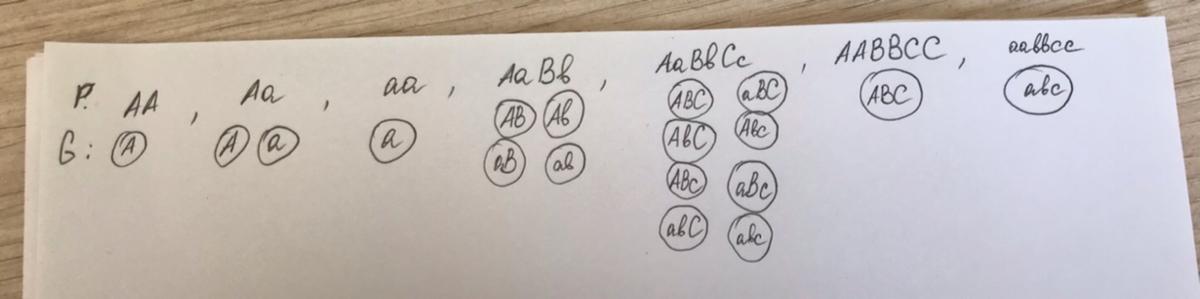 P. AA , Aa , aa , AaBb , AaBbCc , AABBCC , aabbcc
G: A A a a AB Ab ABC aBC ABC abc
AbC Abc
aB ab ABc aBc
abC abc